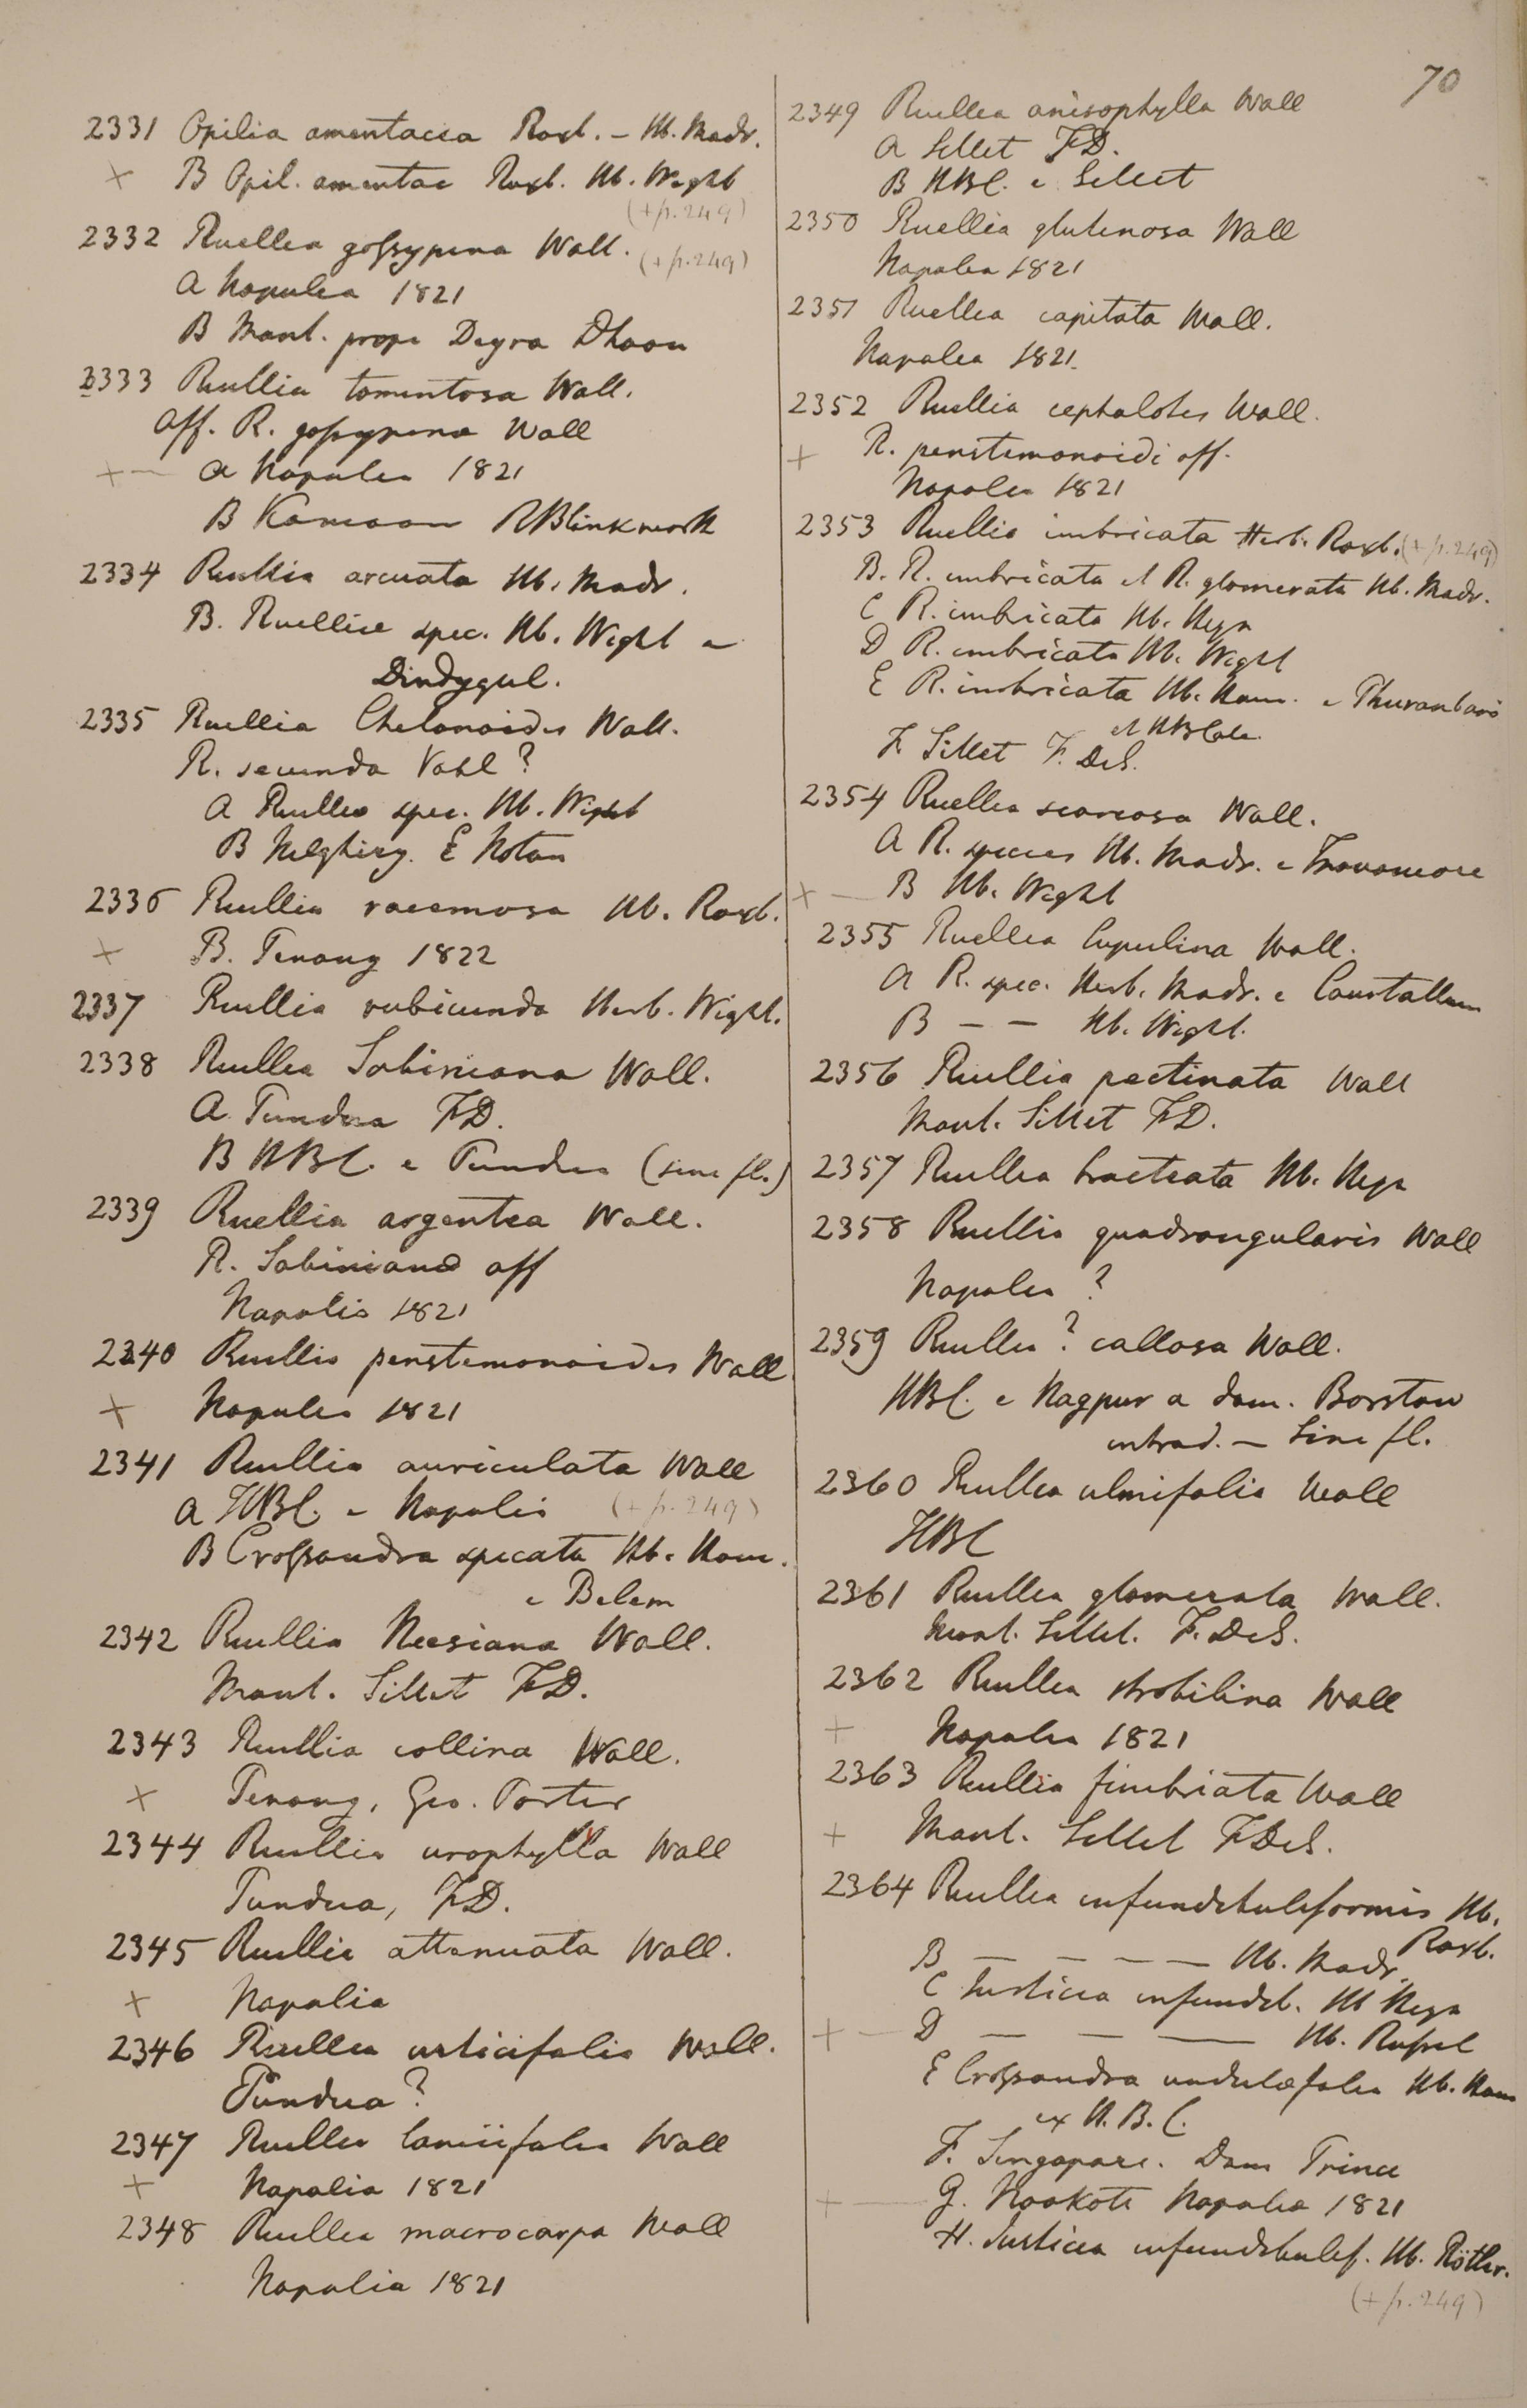 70
2331 Opilia amentacea Roxb. – Hb. Madr.
+ B Opil. amentac Roxb. Hb. Wight
(+ p. 249)
2332 Ruellia gossypina Wall. (+ p. 249)
A Napalia 1821
B Mont. prope Deyra Dhoon
2333 Ruellia tomentosa Wall.
Aff. R. gossypina Wall
+ — A Napalia 1821
B Kamaon RBlinkworth
2334 Ruellia arcuata Hb. Madr.
B. Ruelliae spec. Hb. Wight e
Dindygul.
2335 Ruellia Chelonoides Wall.
R. secunda Vahl?
A Ruellia spec. Hb. Wight
B Nelghiry. E Noton
2336 Ruellia racemosa Hb. Roxb.
+ B. Penang 1822
2337 Ruellia rubicunda Herb. Wight.
2338 Ruellia Sabiniana Wall.
A Pundua FD.
B HBC. e Pundua (sine fl.)
2339 Ruellia argentea Wall.
R. Sabiniana aff
Napalia 1821
2340 Ruellia penstemonoides Wall
+ Napalia 1821
2341 Ruellia auriculata Wall
A HBC. e Napalia (+ p. 249)
B Crossandra spicata Hb. Ham.
e Belem
2342 Ruellia Neesiana Wall.
Mont. Sillet FD.
2343 Ruellia collina Wall.
+ Penang, Geo. Porter
2344 Ruellia urophylla Wall
Pundua, FD.
2345 Ruellia attenuata Wall.
+ Napalia
2346 Ruellia urticifolia Wall.
Pundua?
2347 Ruellia lamiifolia Wall
+ Napalia 1821
2348 Ruellia macrocarpa Wall
Napalia 1821
2349 Ruellia anisophylla Wall
A Sillet FD.
B HBC. e Sillet
2350 Ruellia glutinosa Wall
Napalia 1821
2351 Ruellia capitata Wall.
Napalia 1821
2352 Ruellia cephalotes Wall.
+ R. penstemonoidi aff.
Napalia 1821
2353 Ruellia imbricata Herb. Roxb. (+ p. 249)
B. R. imbricata et R. glomerata Hb. Madr.
C R. imbricata Hb. Heyn
D R. imbricata Hb. Wight
E R. imbricata Hb. Ham. e Thuranbari
et HBCalc.
F Sillet F. DeS.
2354 Ruellia scariosa Wall.
A R. species Hb. Madr. e Travancore
+ — B Hb. Wight
2355 Ruellia lupulina Wall.
A R. spec. Herb. Madr. e Courtallum
B — — Hb. Wight.
2356 Ruellia pectinata Wall
Mont. Sillet FD.
2357 Ruellia bracteata Hb. Heyn
2358 Ruellia quadrangularis Wall
Napalia?
2359 Ruellia? callosa Wall.
HBC. e Nagpur a dom. Borston
introd. — Sine fl.
2360 Ruellia ulmifolia Wall
HBC
2361 Ruellia glomerata Wall.
Mont. Sillet. F. DeS.
2362 Ruellia strobilina Wall
+ Napalia 1821
2363 Ruellia fimbriata Wall
+ Mont. Sillet F DeS.
2364 Ruellia infundibuliformis Hb.
Roxb.
B — — — Hb. Madr.
C Justicia infundib. Hb Heyn
+ — D — — — Hb. Russel
E Crossandra undulaefolia Hb. Ham
ex H. B. C.
F. Singapore. Dom Prince
+ — G. Noakote Napalia 1821
H. Justicia infundibulif. Hb. Röttler.
(+ p. 249)